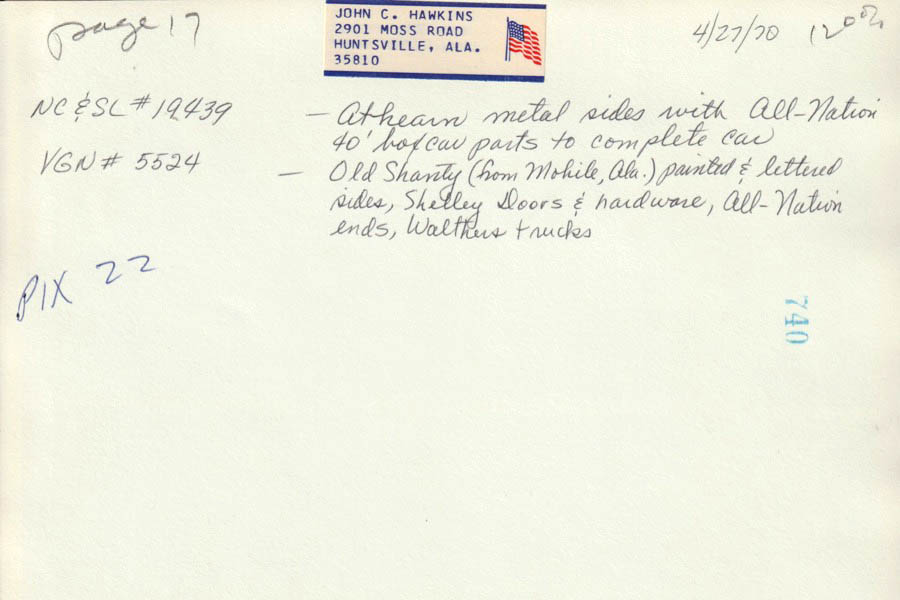 page 17
JOHN C. HAWKINS
2901 MOSS ROAD
HUNTSVILLE, ALA.
35810
4/27/70 120%
NC&SL # 19,439 — Athearn metal sides with All-Nation
40' boxcar parts to complete car
VGN # 5524 — Old Shanty (from Mobile, Ala.) painted & lettered
sides, Shelley Doors & hardware, All-Nation
ends, Walthers trucks
PIX 22
740